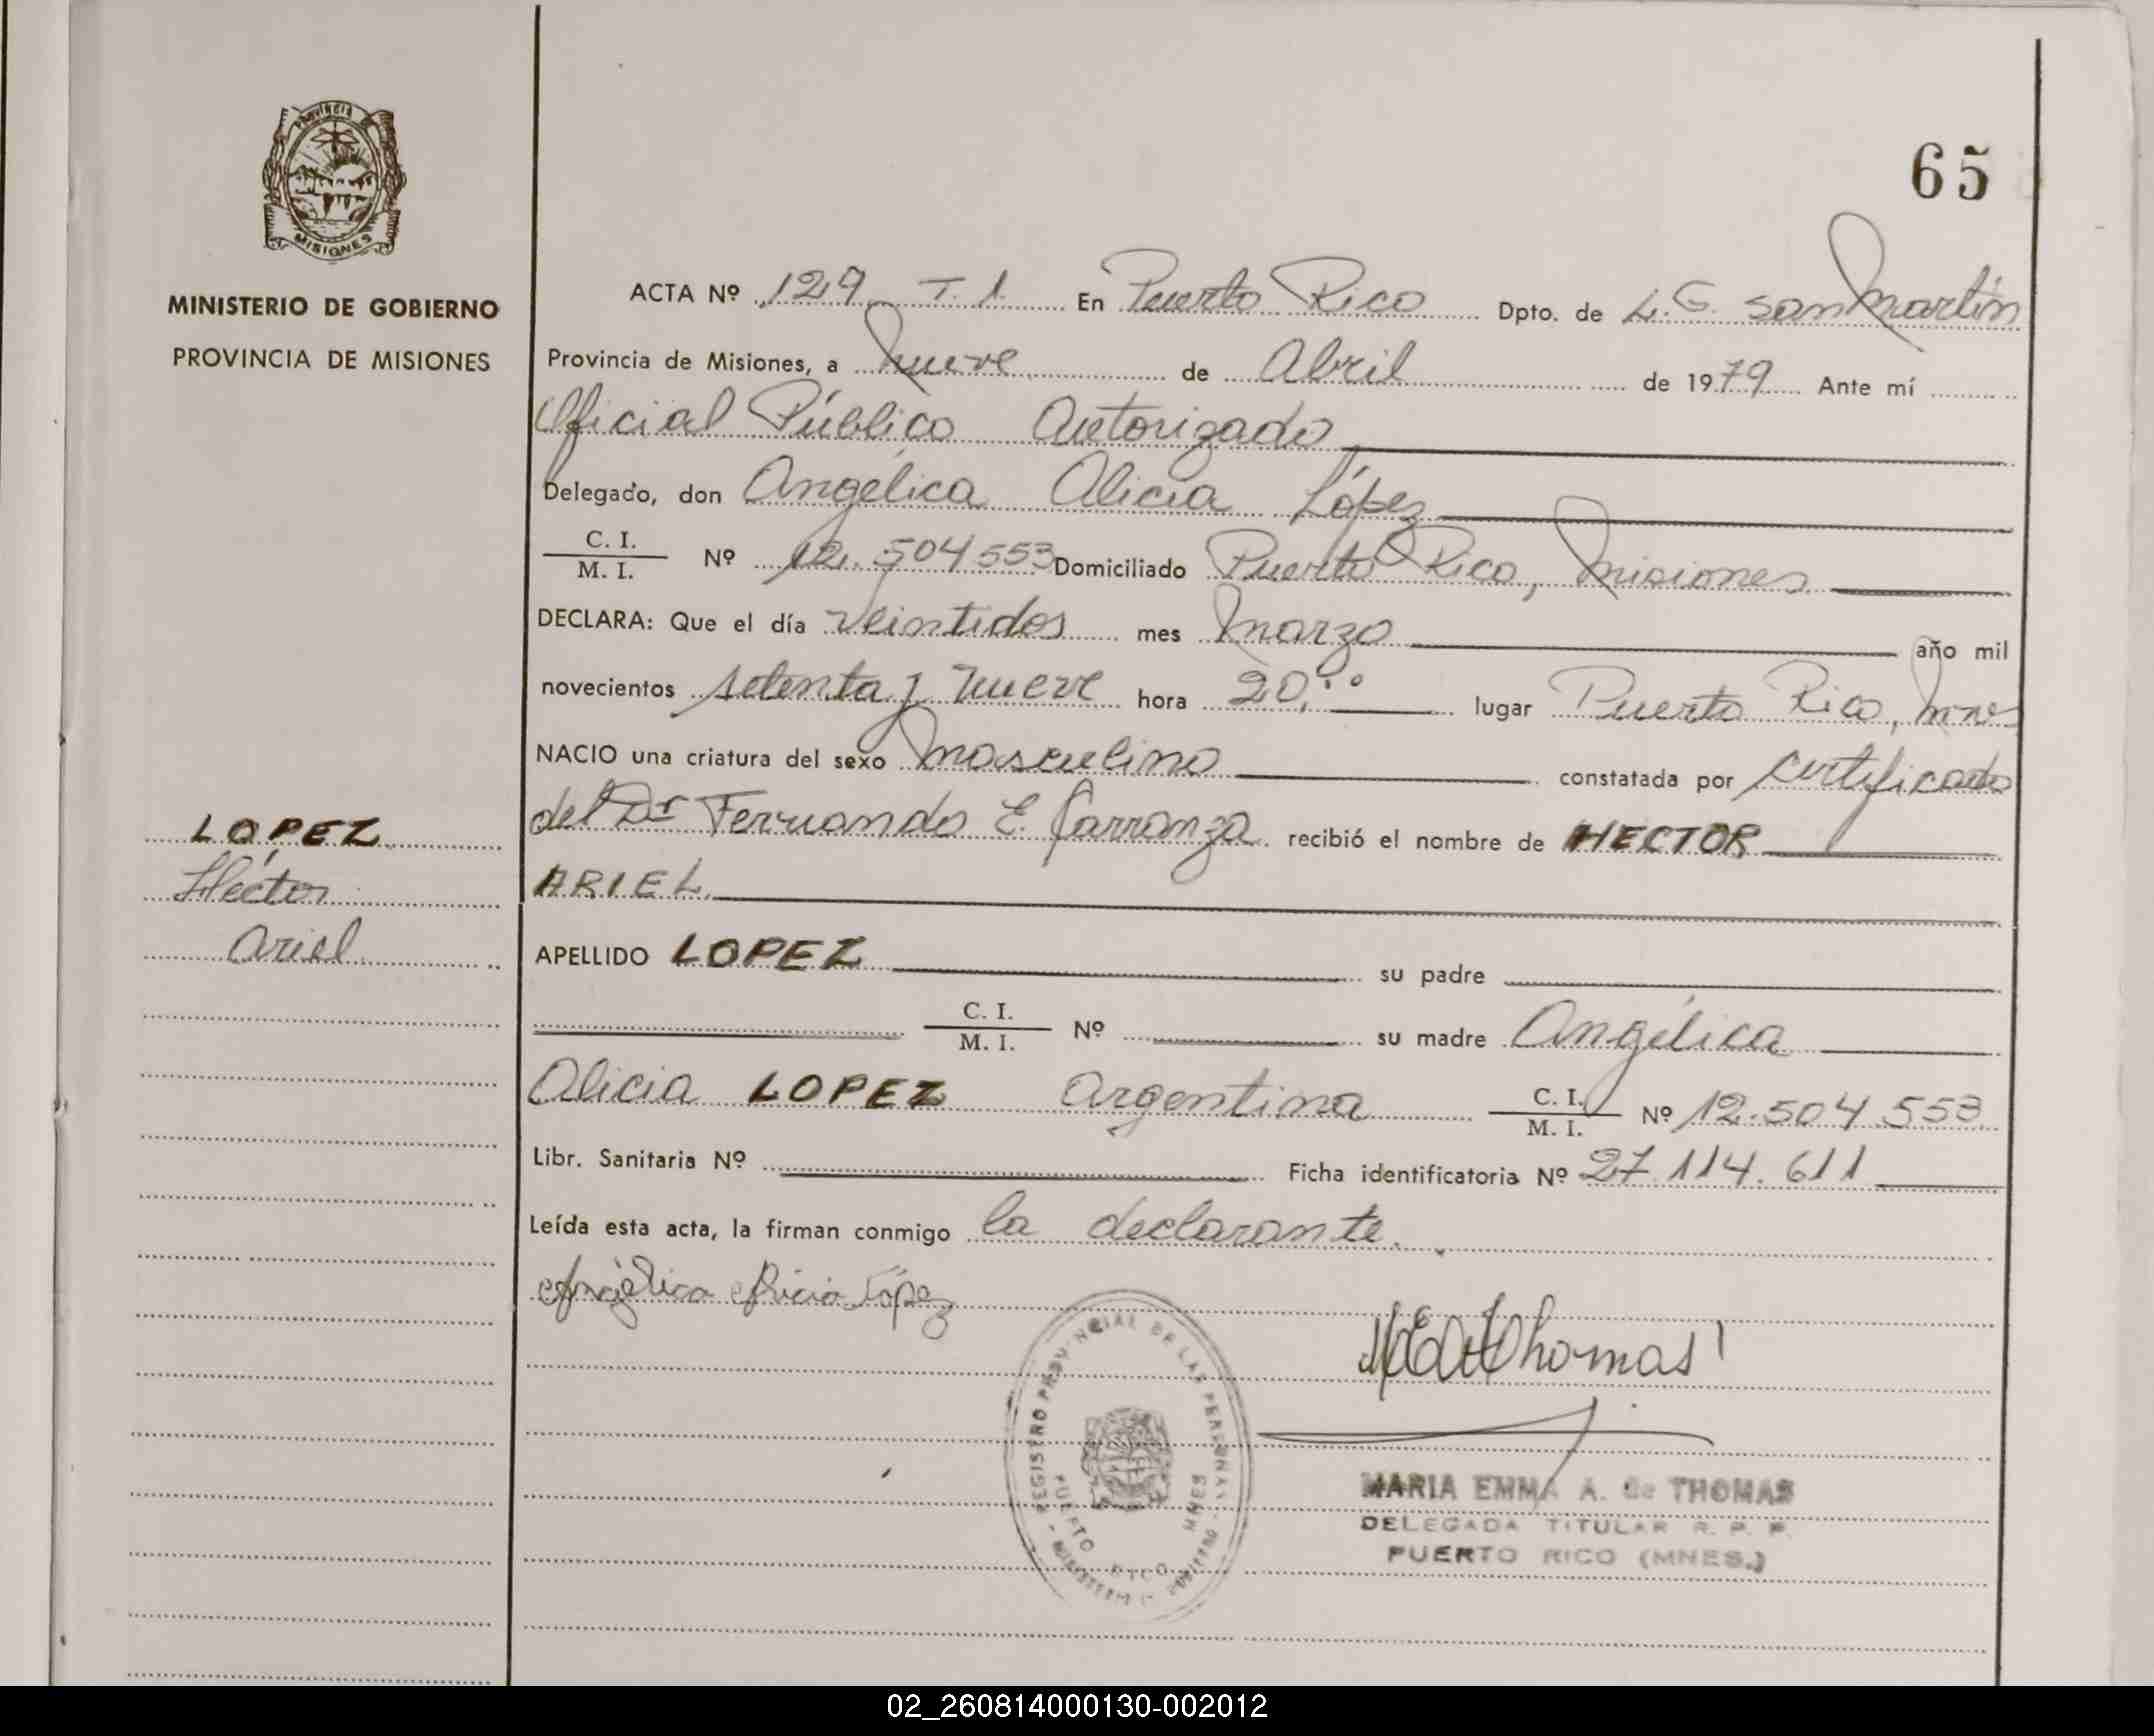 65
Provincia
MISIONES
MINISTERIO DE GOBIERNO
PROVINCIA DE MISIONES
ACTA Nº 129 T. 1 En Puerto Rico Dpto. de L. G. San Martín
Provincia de Misiones, a nueve de Abril de 1979 Ante mí
Oficial Público Autorizado
Delegado, don Angélica Alicia López
C. I.
M. I. Nº 12.504553 Domiciliado Puerto Rico, Misiones
DECLARA: Que el día veintidos mes marzo año mil
novecientos setenta y nueve hora 20,oo lugar Puerto Rico, Mnes
NACIO una criatura del sexo masculino constatada por certificado
del Dr Fernando E. Carranza recibió el nombre de HECTOR
ARIEL
LOPEZ
Héctor
Ariel
APELLIDO LOPEZ su padre
C. I.
M. I. Nº su madre Angélica
Alicia LOPEZ Argentina C. I.
M. I. Nº 12.504.553
Libr. Sanitaria Nº Ficha identificatoria Nº 27.114.611
Leída esta acta, la firman conmigo la declarante.
Angélica Alicia López
REGISTRO PROVINCIAL DE LAS PERSONAS
PUERTO RICO MNES
MARIA EMMA A. de THOMAS
DELEGADA TITULAR R. P. P.
PUERTO RICO (MNES.)
02_260814000130-002012